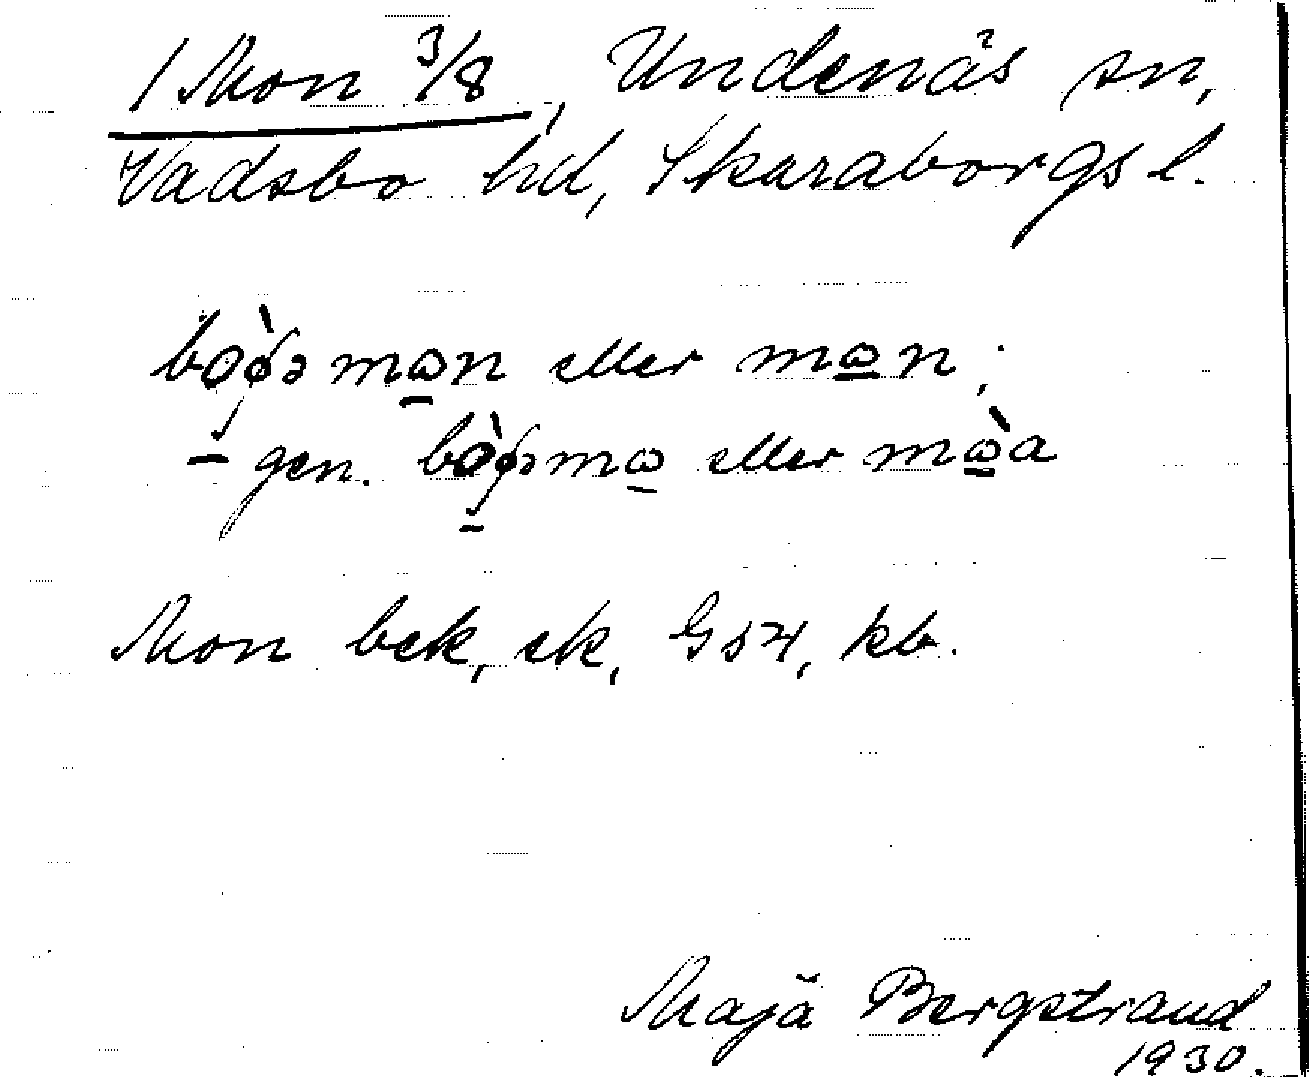 1 Mon 3/8, Undenäs sn,
Vadsbo hd, Skaraborgs l.
eller
gen. eller
Mon bek, ek, Gs4, kb.
Maja Bergstrand
1930.